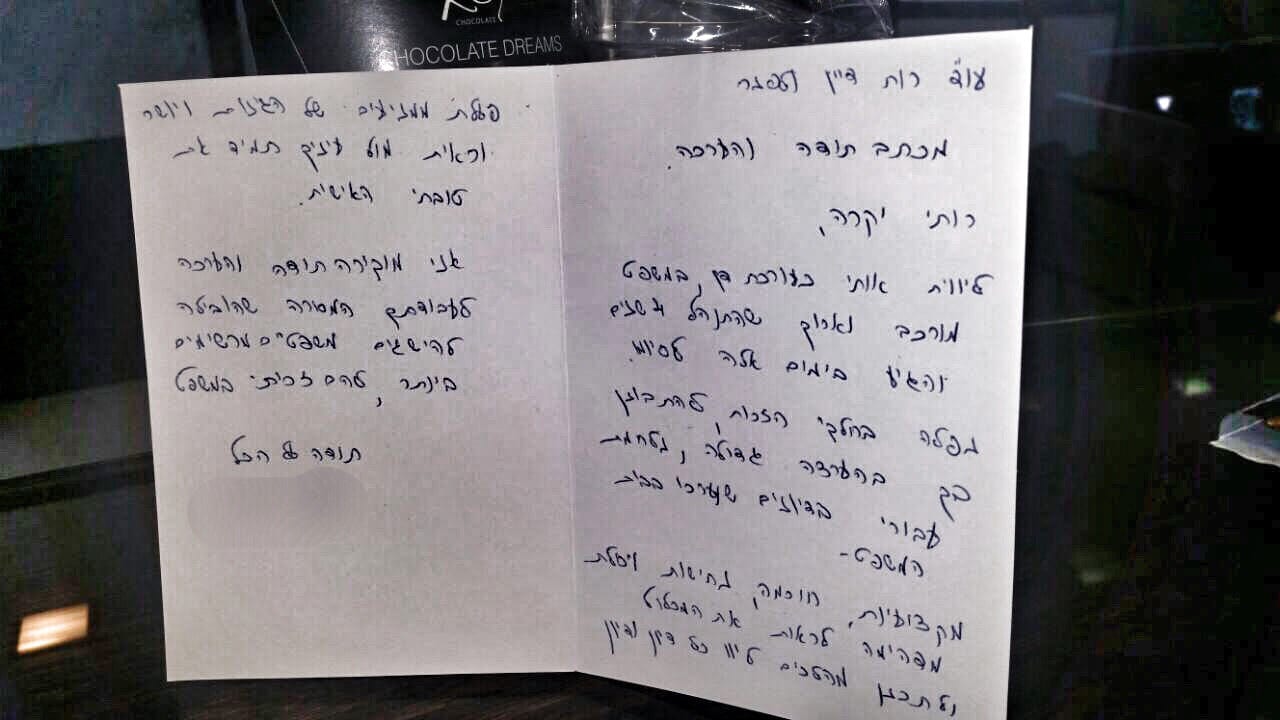 CHOCOLATE
CHOCOLATE DREAMS
עו"ד רות דיין וולפנר
מכתב תודה והערכה.
רותי יקרה,
ליווית אותי כעורכת דין, במשפט
מורכב וארוך שהתנהל 4 שנים
והגיע בימים אלה לסיומו.
נפלה בחלקי הזכות, להתבונן
בך בהערצה גדולה, נלחמת
עבורי בדיונים שנערכו בבית
המשפט-
מקצועיות, חוכמה, נחישות ויכולת
מדהימה לראות את המכלול
ולתכנן מהלכים ליוו כל דיון ודיון
פעלת ממניעים של הגינות ויושר
וראית מול עיניך תמיד את
טובתי האישית.
אני מוקירה תודה והערכה
לעבודתך המסורה שהובילה
להישגים משפטיים מרשימים
ביותר, להם זכיתי במשפט
תודה על הכל